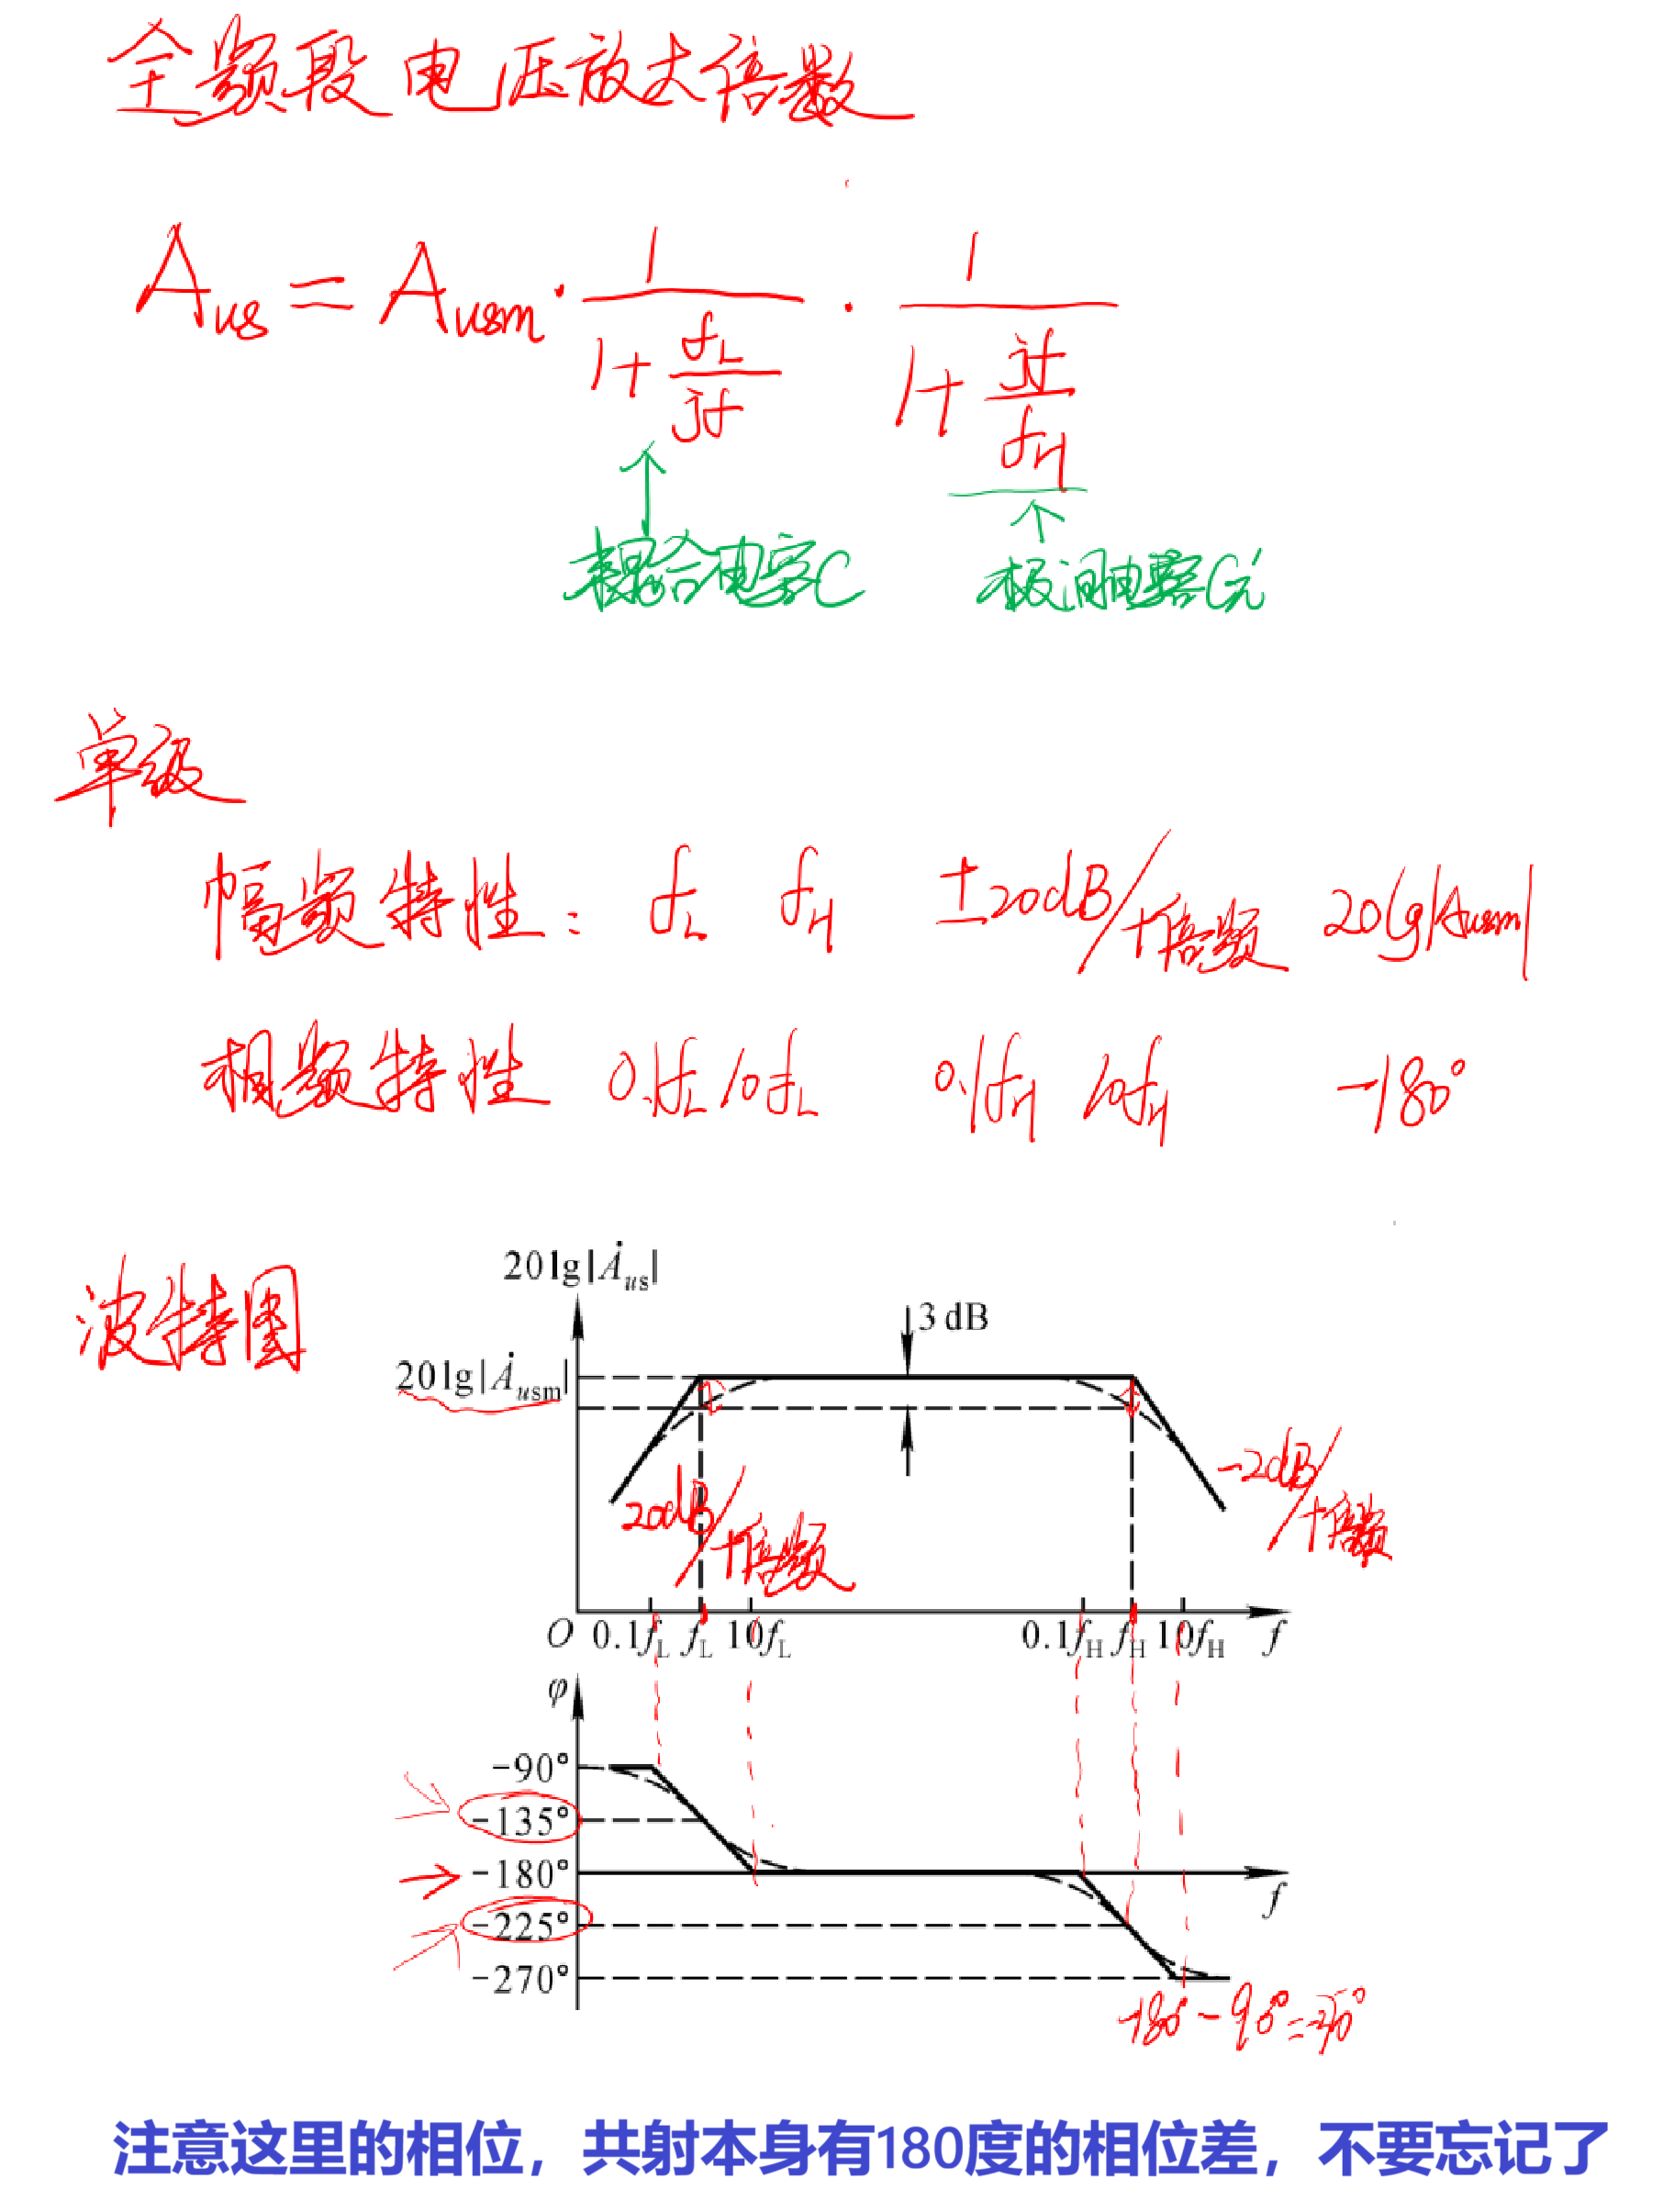 全频段电压放大倍数
A_us = A_usm · 1/(1+f_L/(jf)) · 1/(1+jf/f_H)
耦合电容C 极间电容C'π
单级
幅频特性: f_L f_H ±20dB/十倍频 20lg|A_usm|
相频特性 0.1f_L 10f_L 0.1f_H 10f_H -180°
波特图
20lg|Ȧ_us|
3 dB
20lg|Ȧ_usm|
20dB/十倍频 -2dB/十倍频
O 0.1f_L f_L 10f_L 0.1f_H f_H 10f_H f
φ
-90°
-135°
-180°
f
-225°
-270°
-180°-90°=-270°
注意这里的相位，共射本身有180度的相位差，不要忘记了